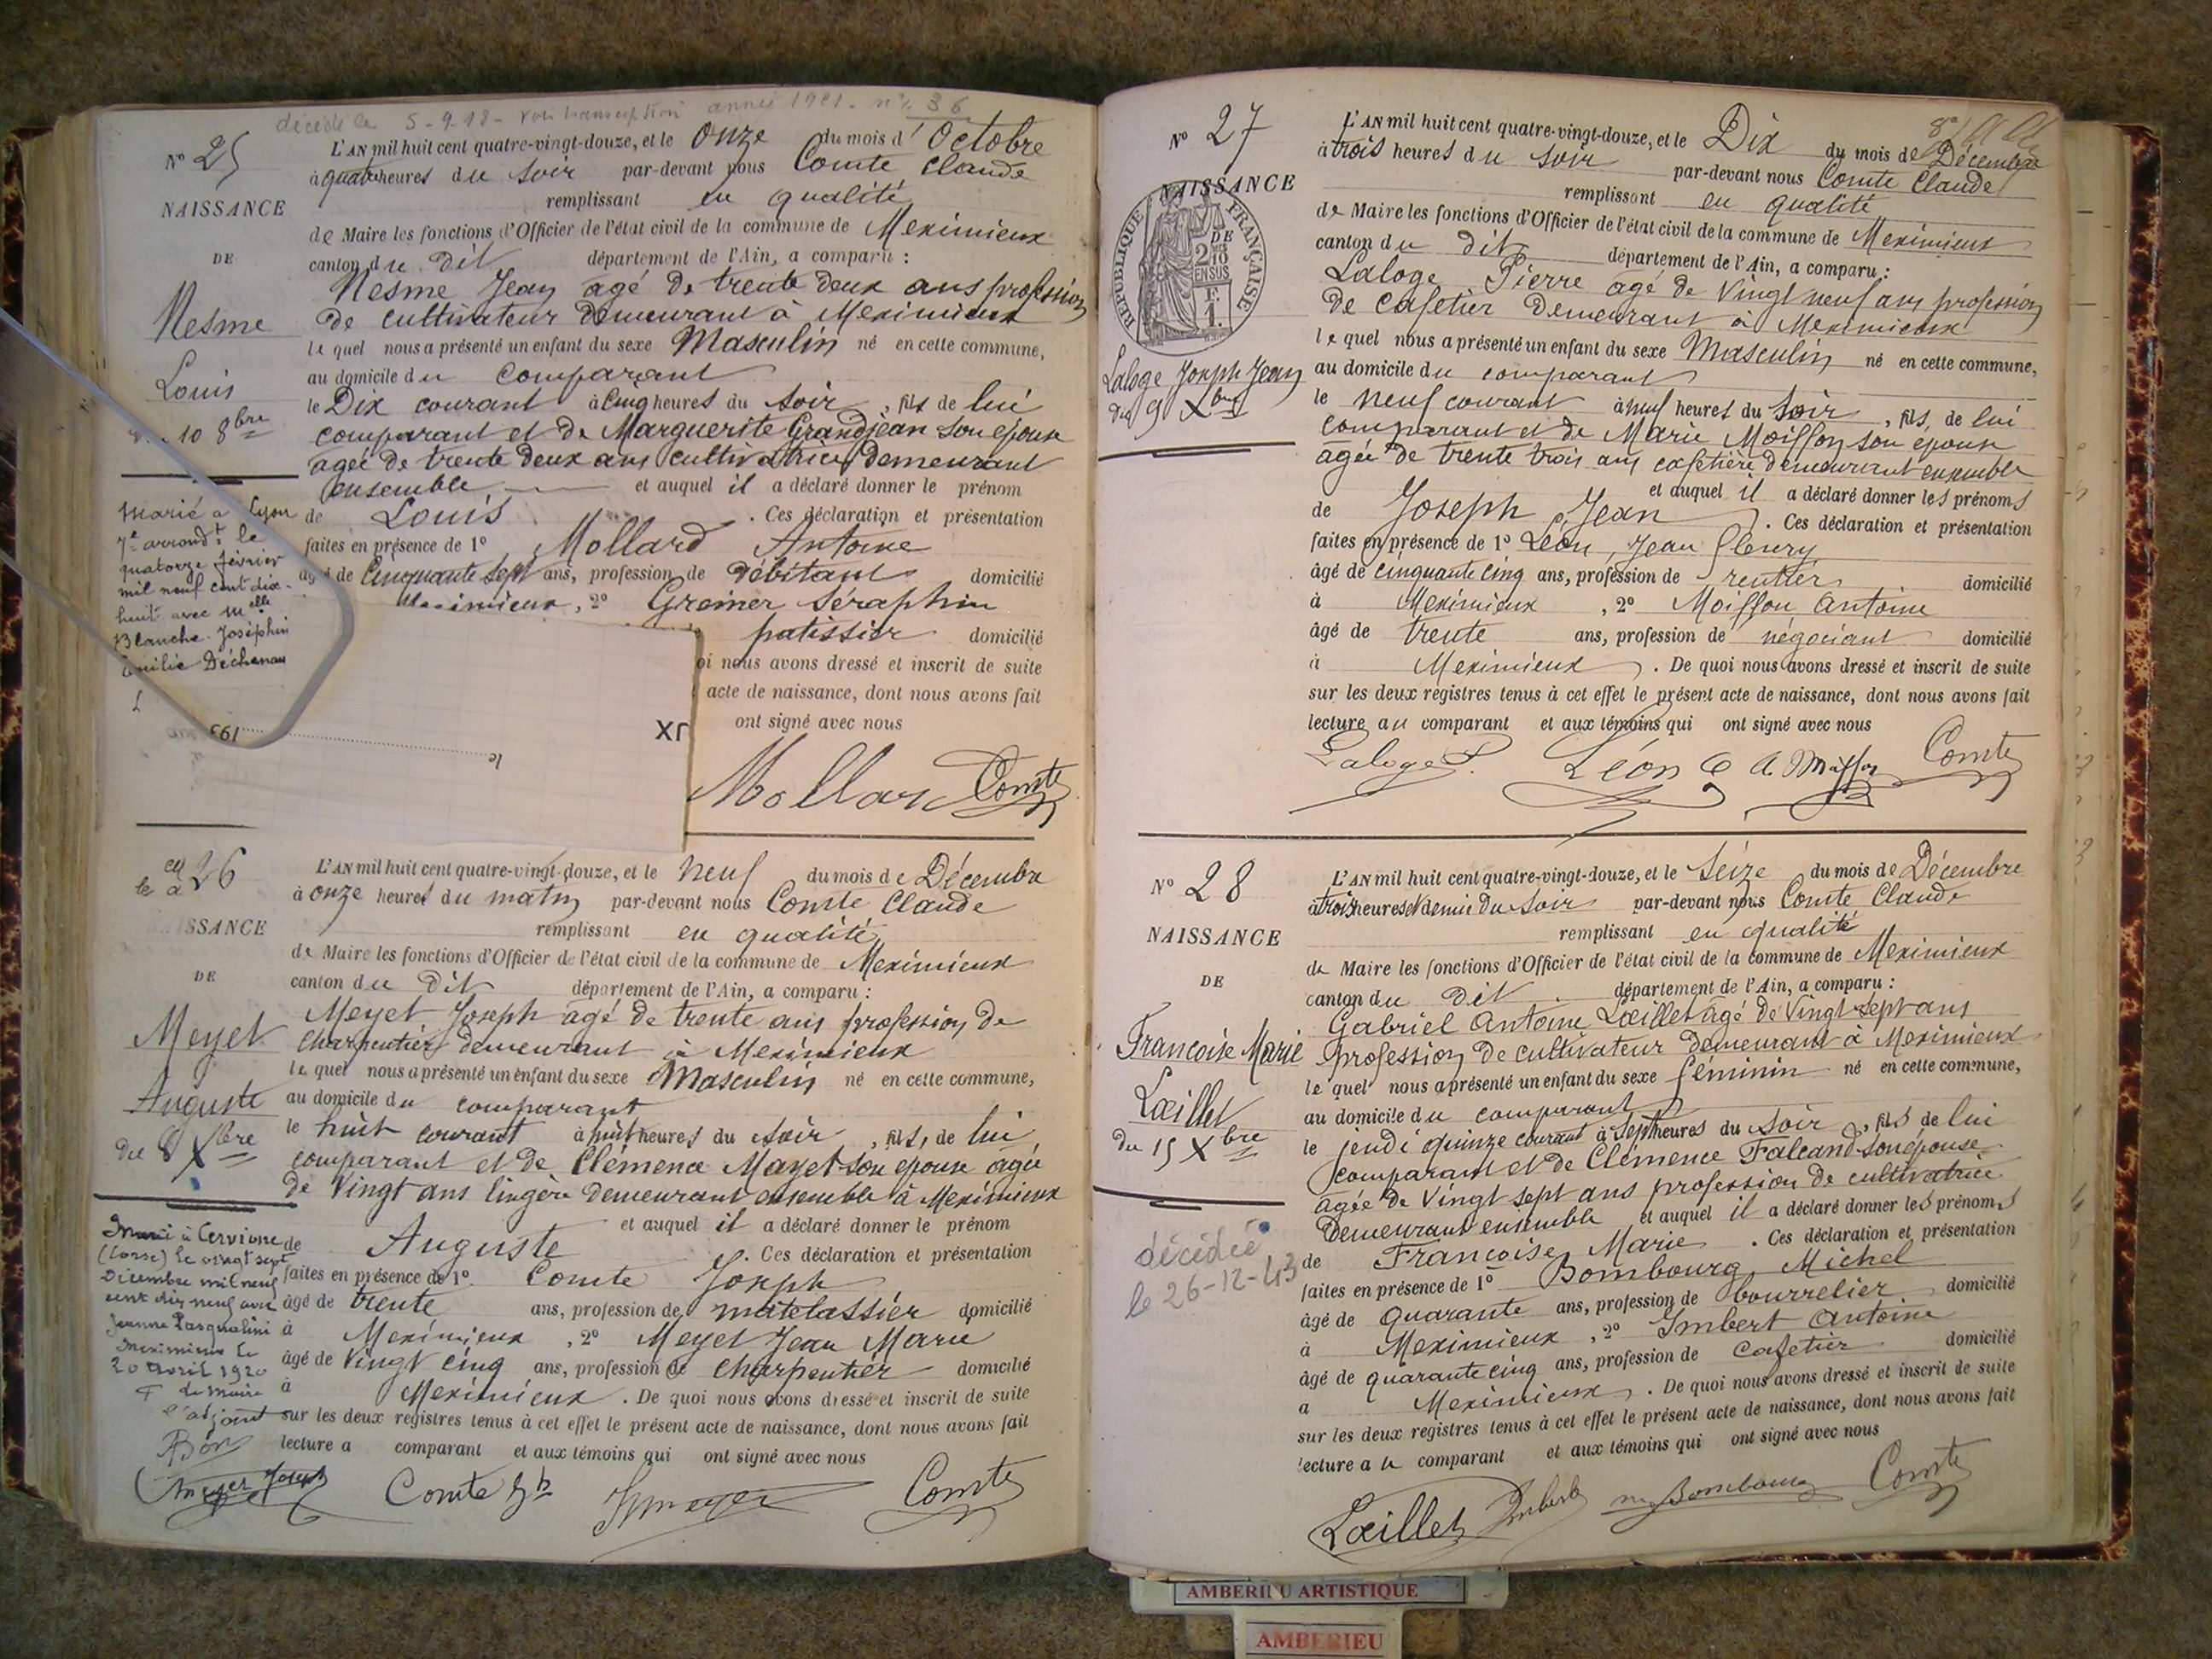 décédé le 5-9-18 - voir transcription année 1921 - n° 36
N° 25
NAISSANCE
DE
Nesme
Louis
10 8bre
Marié à Lyon
7e arrondt le
quatorze février
mil neuf cent dix-
huit avec Melle
Blanche Joséphin
Emilie Déchenau
L'AN mil huit cent quatre-vingt-douze, et le Onze du mois d'Octobre
à quatre heures du soir par-devant nous Comte Claude
remplissant en qualité
de Maire les fonctions d'Officier de l'état civil de la commune de Meximieux
canton du dit département de l'Ain, a comparu :
Nesme Jean agé de trente deux ans profession
de cultivateur demeurant à Meximieux
le quel nous a présenté un enfant du sexe Masculin né en cette commune,
au domicile du comparant
le Dix courant à cinq heures du soir, fils de lui
comparant et de Marguerite Grandjean son epouse
agée de trente deux ans cultivatrice demeurant
ensemble et auquel il a déclaré donner le prénom
de Louis . Ces déclaration et présentation
faites en présence de 1° Mollard Antoine
âgé de Cinquante sept ans, profession de débitant domicilié
Meximieux, 2° Greiner Séraphin
patissier domicilié
oi nous avons dressé et inscrit de suite
acte de naissance, dont nous avons fait
ont signé avec nous
195
le
JX
Mollard Comte
le 26
NAISSANCE
DE
Meyet
Auguste
du 8 Xbre
Marié à Cervione
(Corse) le vingt sept
Décembre mil neuf
cent dix neuf avec
Jeanne Pasqualini
Meximieux le
20 avril 1920
P le Maire
l'adjoint
L'AN mil huit cent quatre-vingt-douze, et le neuf du mois de Décembre
à onze heures du matin par-devant nous Comte Claude
remplissant en qualité
de Maire les fonctions d'Officier de l'état civil de la commune de Meximieux
canton du Dit département de l'Ain, a comparu :
Meyet Joseph agé de trente ans profession de
charpentier demeurant à Meximieux
le quel nous a présenté un enfant du sexe Masculin né en cette commune,
au domicile du comparant
le huit courant à huit heures du soir, fils, de lui
comparant et de Clémence Mayet son epouse agée
de vingt ans lingère demeurant ensemble à Meximieux
et auquel il a déclaré donner le prénom
de Auguste . Ces déclaration et présentation
faites en présence de 1° Comte Joseph
âgé de trente ans, profession de matelassier domicilié
à Meximieux, 2° Meyet Jean Marie
âgé de vingt cinq ans, profession de charpentier domicilié
à Meximieux . De quoi nous avons dressé et inscrit de suite
sur les deux registres tenus à cet effet le présent acte de naissance, dont nous avons fait
lecture a comparant et aux témoins qui ont signé avec nous
Meyer Joseph Comte Jh Comte
N° 27
NAISSANCE
RÉPUBLIQUE FRANÇAISE
DE
2/10
EN SUS
Laloge Joseph Jean
du 9 Xbre
L'AN mil huit cent quatre-vingt-douze, et le Dix du mois de Décembre
à trois heures du soir par-devant nous Comte Claude
remplissant en qualité
de Maire les fonctions d'Officier de l'état civil de la commune de Meximieux
canton du dit département de l'Ain, a comparu :
Laloge Pierre agé de vingt neuf ans profession
de cafetier demeurant à Meximieux
le quel nous a présenté un enfant du sexe Masculin né en cette commune,
au domicile du comparant
le neuf courant à neuf heures du soir, fils, de lui
comparant et de Marie Moiffon son epouse
agée de trente trois ans cafetière demeurant ensemble
et auquel il a déclaré donner les prénoms
de Joseph Jean . Ces déclaration et présentation
faites en présence de 1° Léon, Jean fleury
âgé de cinquante cinq ans, profession de rentier domicilié
à Meximieux, 2° Moiffon Antoine
âgé de trente ans, profession de négociant domicilié
à Meximieux . De quoi nous avons dressé et inscrit de suite
sur les deux registres tenus à cet effet le présent acte de naissance, dont nous avons fait
lecture au comparant et aux témoins qui ont signé avec nous
Laloge P. Léon A. Moiffon Comte
N° 28
NAISSANCE
DE
Francoise Marie
Lœillet
du 15 Xbre
décédée
le 26-12-43
L'AN mil huit cent quatre-vingt-douze, et le Seize du mois de Décembre
à trois heures et demie du soir par-devant nous Comte Claude
remplissant en qualité
de Maire les fonctions d'Officier de l'état civil de la commune de Meximieux
canton du dit département de l'Ain, a comparu :
Gabriel Antoine Lœillet agé de vingt sept ans
profession de cultivateur demeurant à Meximieux
le quel nous a présenté un enfant du sexe féminin né en cette commune,
au domicile du comparant
le jeudi quinze courant à sept heures du soir, fils de lui
comparant et de Clémence Falcand son épouse
agée de vingt sept ans profession de cultivatrice
demeurant ensemble et auquel il a déclaré donner les prénoms
de Francoise Marie . Ces déclaration et présentation
faites en présence de 1° Bombourg Michel
âgé de quarante ans, profession de bourrelier domicilié
à Meximieux, 2° Imbert Antoine
âgé de quarante cinq ans, profession de cafetier domicilié
a Meximieux . De quoi nous avons dressé et inscrit de suite
sur les deux registres tenus à cet effet le présent acte de naissance, dont nous avons fait
lecture au comparant et aux témoins qui ont signé avec nous
Lœillet Imbert m Bombourg Comte
AMBERIEU ARTISTIQUE
AMBERIEU